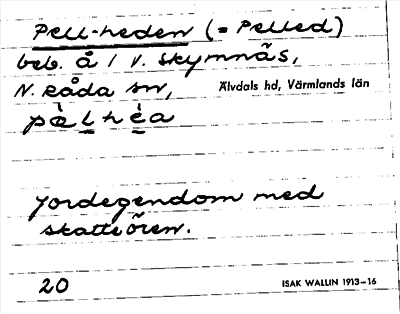 Pell-heden (= Pelled)
beb. å 1 V. Skymnäs,
N. Råda sn, Älvdals hd, Värmlands län
pæ̀lhèa
Jordegendom med
skatteören.
20 ISAK WALLIN 1913–16